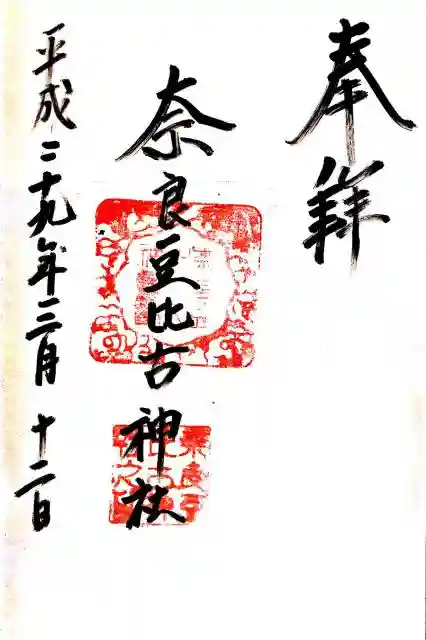 奉拝
奈良豆比古神社
平成二十九年三月十二日